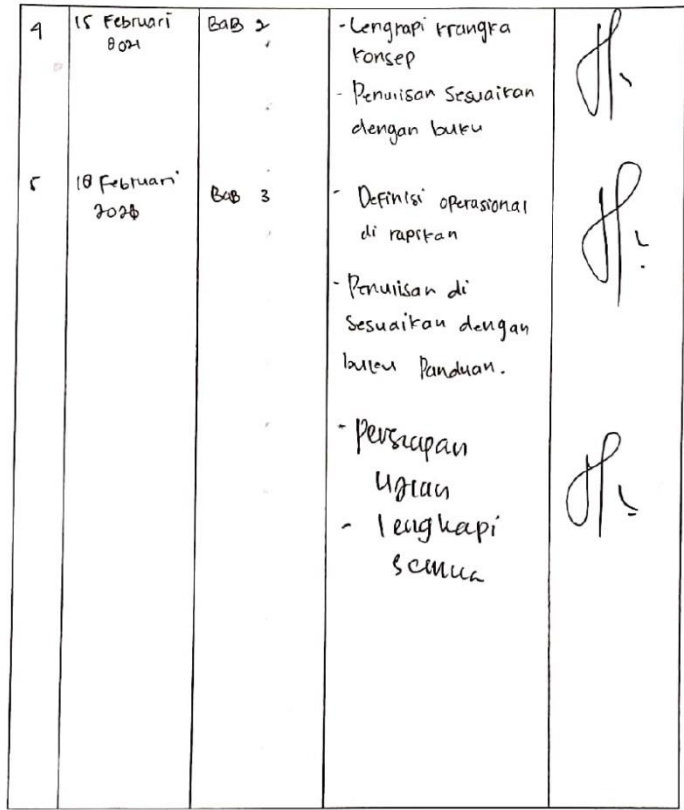 4
15 Februari
2021
BAB 2
- Lengkapi krangka
konsep
- Penulisan Sesuaikan
dengan buku
5
18 Februari
2021
BAB 3
- Definisi operasional
di rapikan
- Penulisan di
Sesuaikan dengan
buku Panduan.
- Persiapan
Ujian
- lengkapi
semua